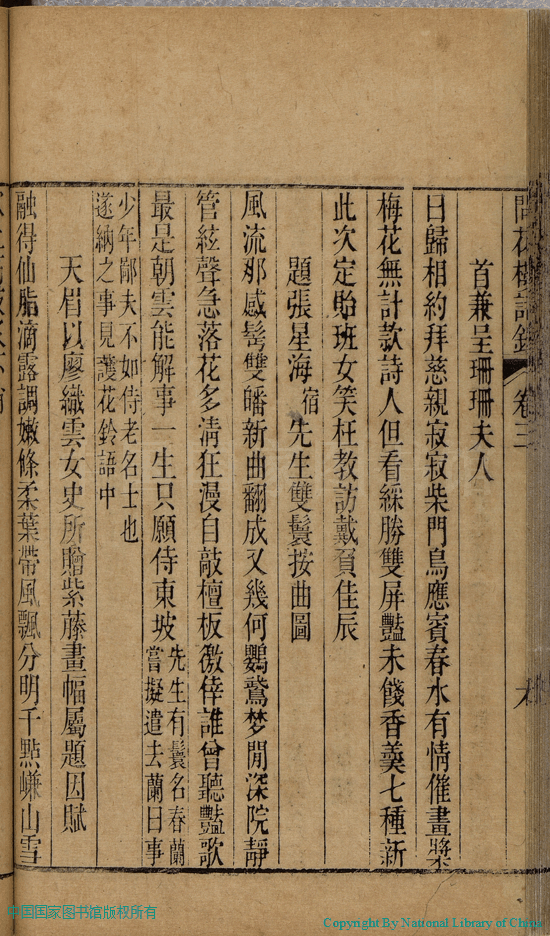 問花樓詩鈔 卷三
首兼呈珊珊夫人
日歸相約拜慈親寂寂柴門鳥應賓春水有情催畫槳
梅花無計款詩人但看綵勝雙屏豔未餞香羹七種新
此次定貽班女笑枉教訪戴負佳辰
題張星海宿先生雙鬟按曲圖
風流那感髩雙皤新曲翻成又幾何鸚鵡梦閒深院靜
管絃聲急落花多清狂漫自敲檀板徼倖誰曾聽豔歌
最是朝雲能解事一生只願侍東坡先生有鬟名春蘭
嘗擬遣去蘭曰事
少年鄙夫不如侍老名士也
遂納之事見護花鈴語中
天眉以廖織雲女史所贈紫藤畫幅屬題因賦
融得仙脂滴露調嫩條柔葉帶風飄分明千點嵰山雪
中国国家图书馆版权所有
Copyright By National Library of China